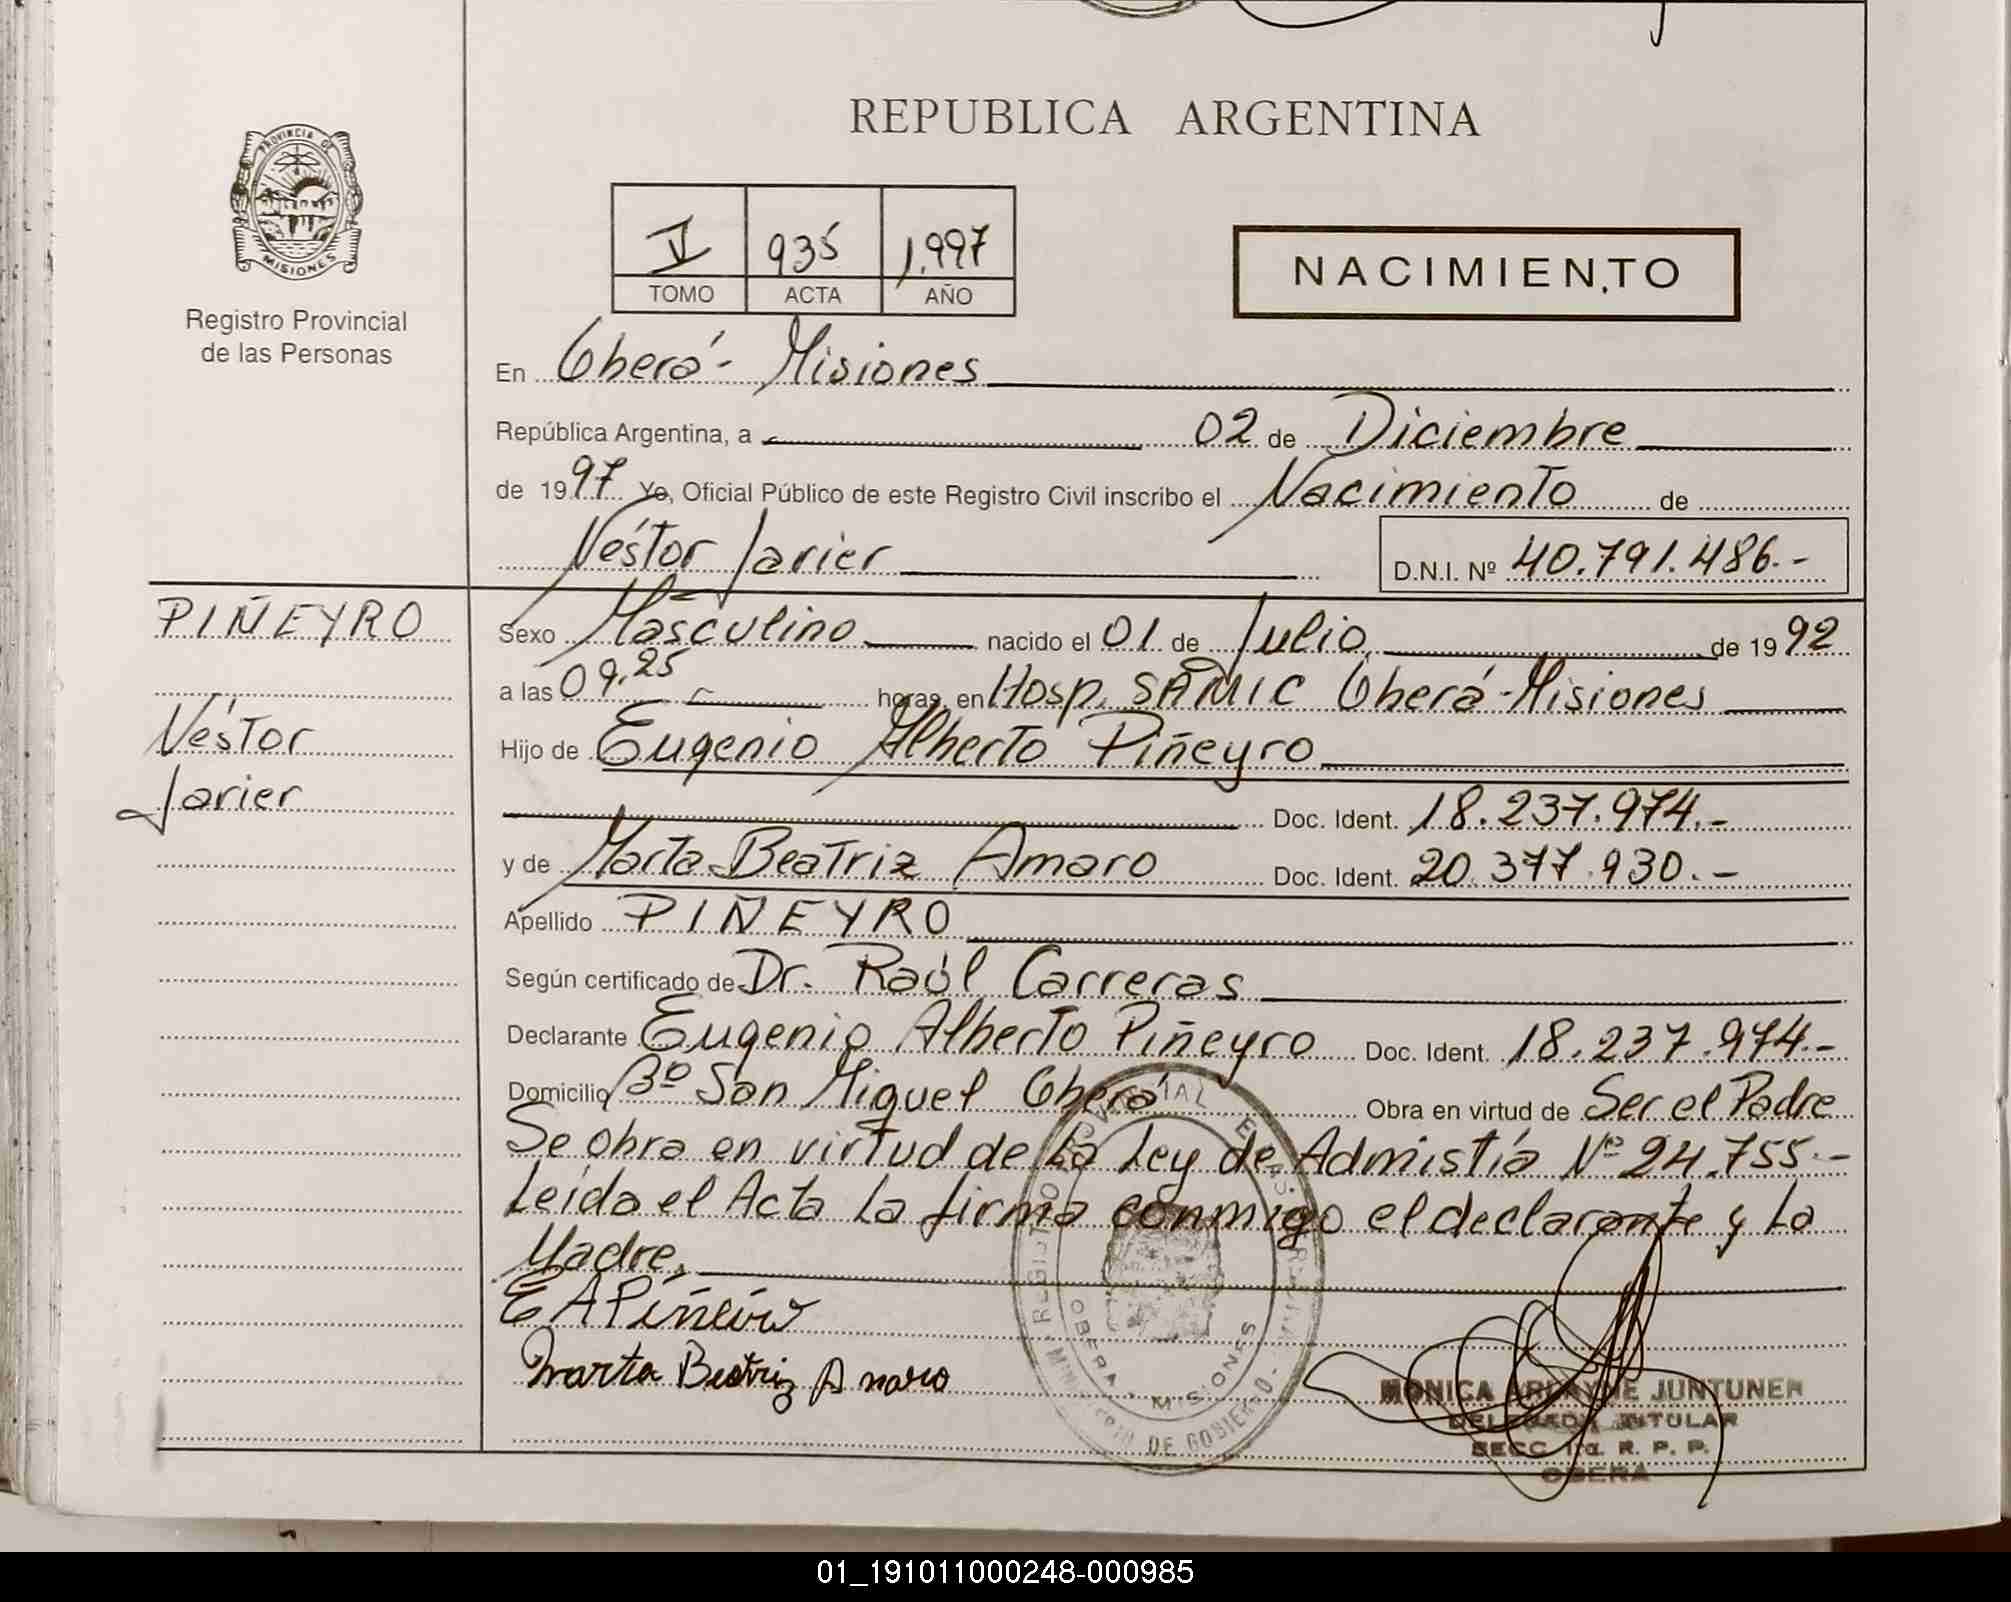 REPUBLICA ARGENTINA
PROVINCIA DE
MISIONES
Registro Provincial
de las Personas
V 935 1.997
TOMO ACTA AÑO
NACIMIENTO
En Oberá - Misiones
República Argentina, a 02 de Diciembre
de 1997 Yo, Oficial Público de este Registro Civil inscribo el Nacimiento de
Néstor Javier D.N.I. Nº 40.791.486.-
PIÑEYRO
Néstor
Javier
Sexo Masculino nacido el 01 de Julio de 1992
a las 09,25 horas, en Hosp. SAMIC Oberá - Misiones
Hijo de Eugenio Alberto Piñeyro
Doc. Ident. 18.237.974.-
y de Marta Beatriz Amaro Doc. Ident. 20.377.930.-
Apellido PIÑEYRO
Según certificado de Dr. Raúl Carreras
Declarante Eugenio Alberto Piñeyro Doc. Ident. 18.237.974.-
Domicilio Bº San Miguel Oberá Obra en virtud de Ser el Padre
Se obra en virtud de La Ley de Admistía Nº 24.755.-
Leída el Acta La firma conmigo el declarante y La
Madre.
E A Piñeiro
Marta Beatriz Amaro
REGISTRO PROVINCIAL DE LAS PERSONAS
OBERA - MISIONES
MINISTERIO DE GOBIERNO
MONICA JUNTUNEN
DELEGADA TITULAR
SECC. 1ra. R. P. P.
OBERA
01_191011000248-000985